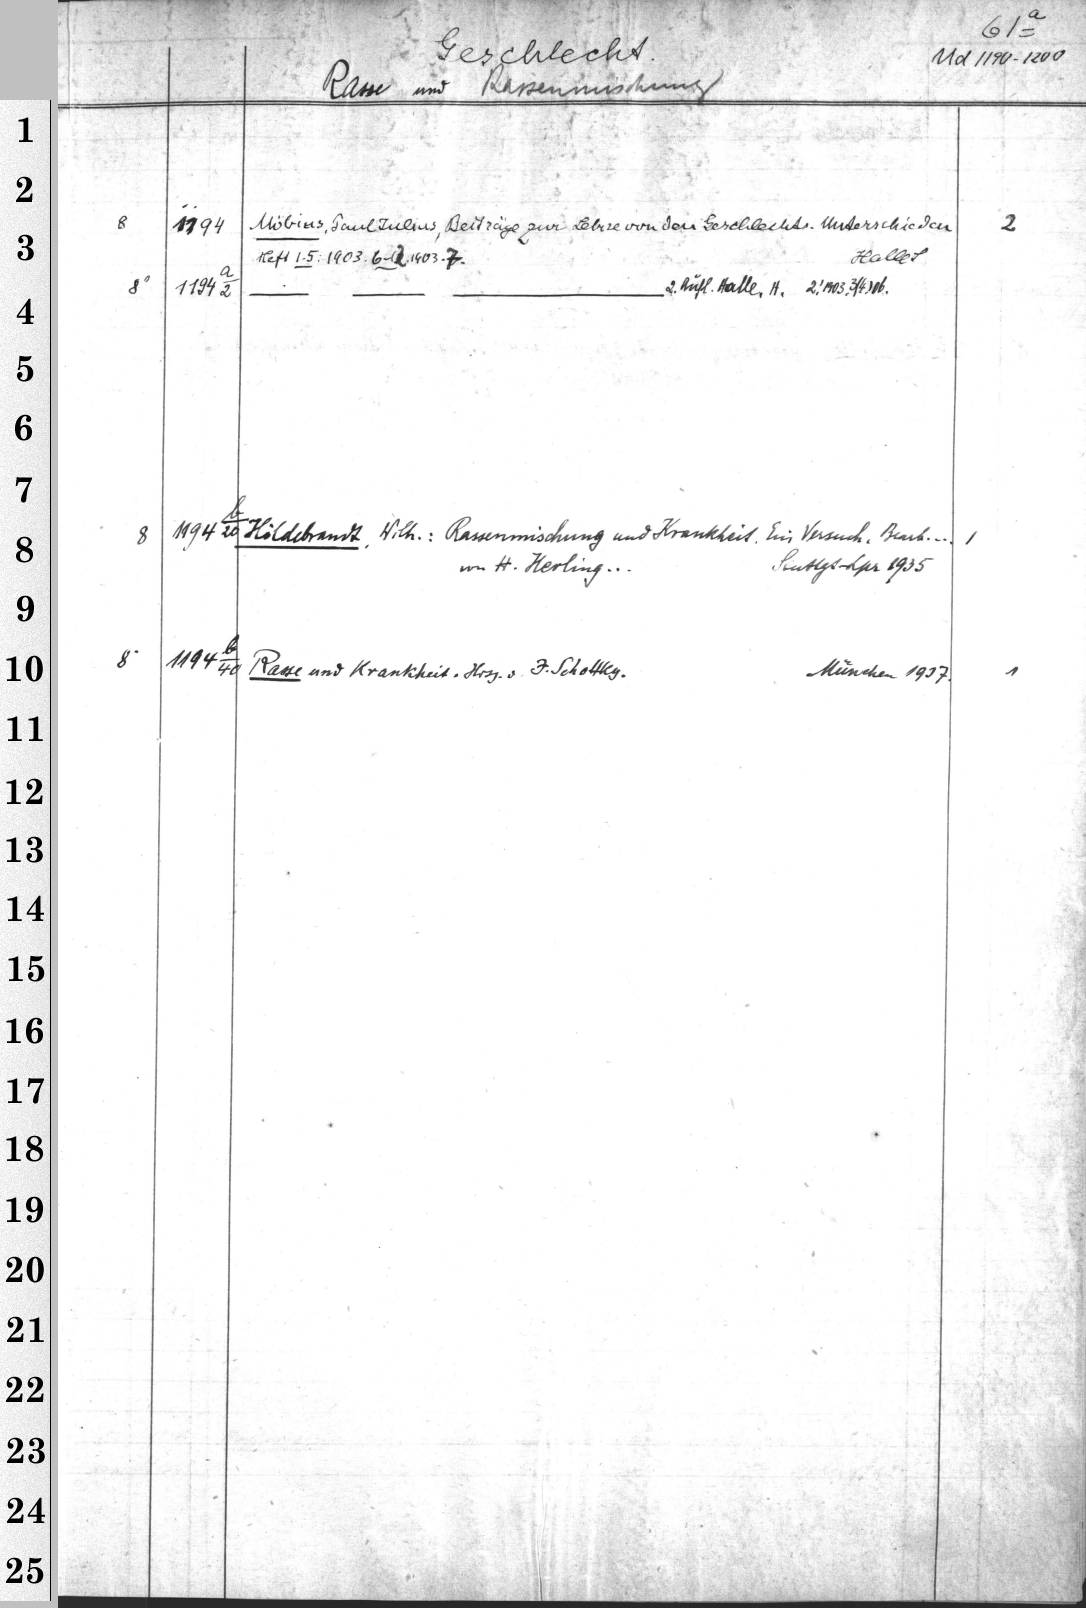 61 a
Md 1190-1200
Geschlecht.
Rasse und Rassenmischung
1
2
8 1194 Möbius, Paul Julius, Beiträge zur Lehre von den Geschlechts-Unterschieden 2
3
Heft 1-5. 1903. 6-12. 1903-7. Halle S
8° 1194 a/2 2. Aufl. Halle, H. 2. 1903. 3/4.
4
5
6
7
8 1194 b/20 Hildebrandt, Wilh.: Rassenmischung und Krankheit. Ein Versuch. Bearb. ... 1
8
von H. Herling... Stuttgt-Lpz 1935
9
8° 1194 b/40 Rasse und Krankheit. Hrsg. v. J. Schottky. München 1937. 1
10
11
12
13
14
15
16
17
18
19
20
21
22
23
24
25